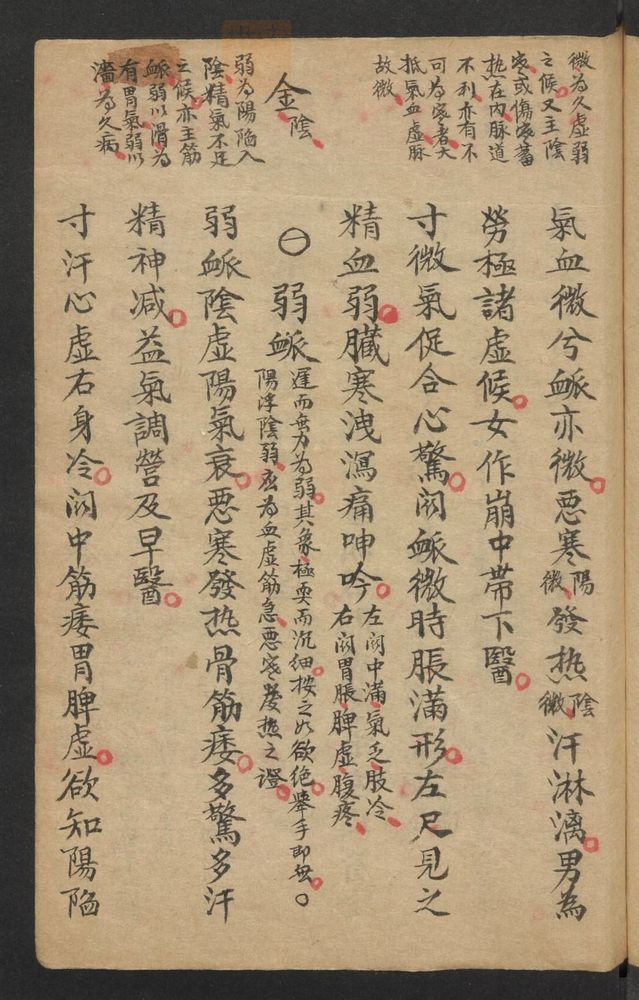 微為久虛弱
之候又主陰
寒或傷寒蓄
热在內脉道
不利亦有不
可為寒者大
抵氣血虛脉
故微
氣血微兮䘑亦微惡寒陽微發热陰微汗淋漓男為
勞極諸虛候女作崩中帶下醫
寸微氣促合心驚関䘑微時脹滿形左尺見之
精血弱臟寒洩瀉痛呻吟左関中滿氣乏肢冷
右関胃脹脾虛腹疼
金陰
〇弱䘑遲而無力為弱其象極耎而沉細按之如欲絕舉手即無〇
陽浮陰弱应為血虛筋急惡寒發热之證
弱為陽陷入
陰精氣不足
之候亦主筋
䘑弱以滑為
有胃氣弱以
濇為久病
弱䘑陰虛陽氣衰惡寒發热骨筋痿多驚多汗
精神减益氣調營及早醫
寸汗心虛右身冷関中筋痿胃脾虛欲知陽陷